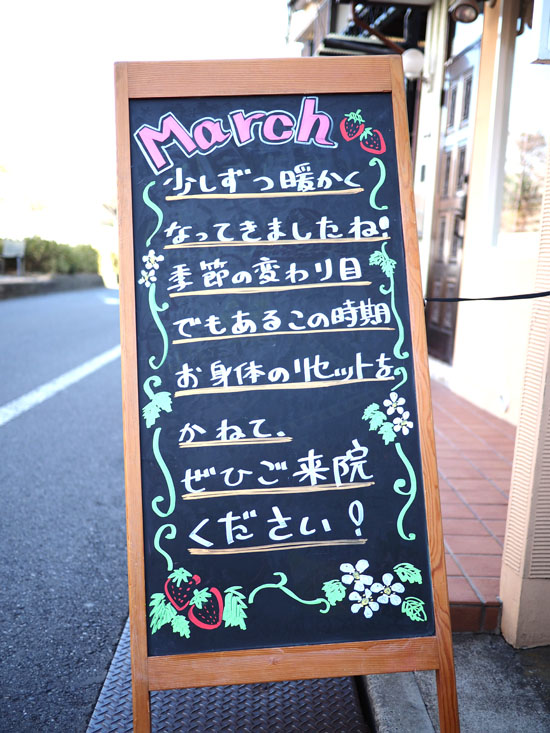 March
少しずつ暖かく
なってきましたね!
季節の変わり目
でもあるこの時期
お身体のリセットを
かねて、
ぜひご来院
ください!